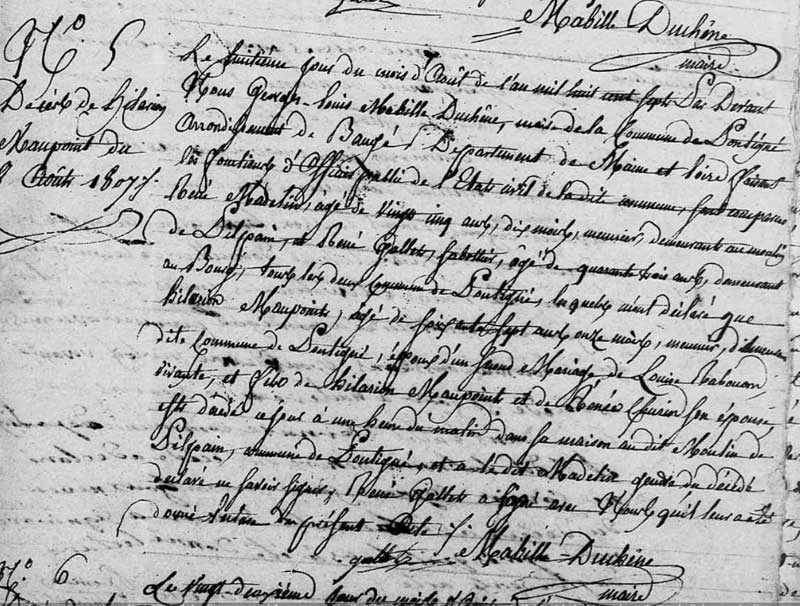 Mabille Duchêne
maire
N.º 5
Décès de hilarion
Maupoint du
8 Août 1807
Le huitième jour du mois d'Août de l'an mil huit cent sept Par Devant
Nous Georges-louis Mabille Duchêne, maire de la Commune de Pontigné
arrondissement de Baugé Département de Maine et loire faisant
les fonctions d'Officier public de l'Etat civil de la dite commune, sont comparus
René Madelin, âgé de vingt cinq ans, dix mois, meunier, demeurant au moulin
de Pispain, et René Gallet, sabottier, âgé de quarante trois ans, demeurant
au Bourg, tous les deux commune de Pontigné, lesquels m'ont déclaré que
hilarion Maupoint, âgé de soixante sept ans onze mois, meunier,
dite Commune de Pontigné, époux d'un second Mariage de Louise
vivante, et fils de hilarion Maupoint et de Renée son épouse,
est décédé ce jour à une heure du matin dans sa maison au dit Moulin de
Pispain, commune de Pontigné, et a le dit Madelin gendre du décédé
déclaré ne savoir signer, René Gallet a signé avec Nous qu'il leur a été
donné lecture du présent Acte
gallet Mabille-Duchêne
maire
N.º 6
Le vingt-deuxième jour du mois